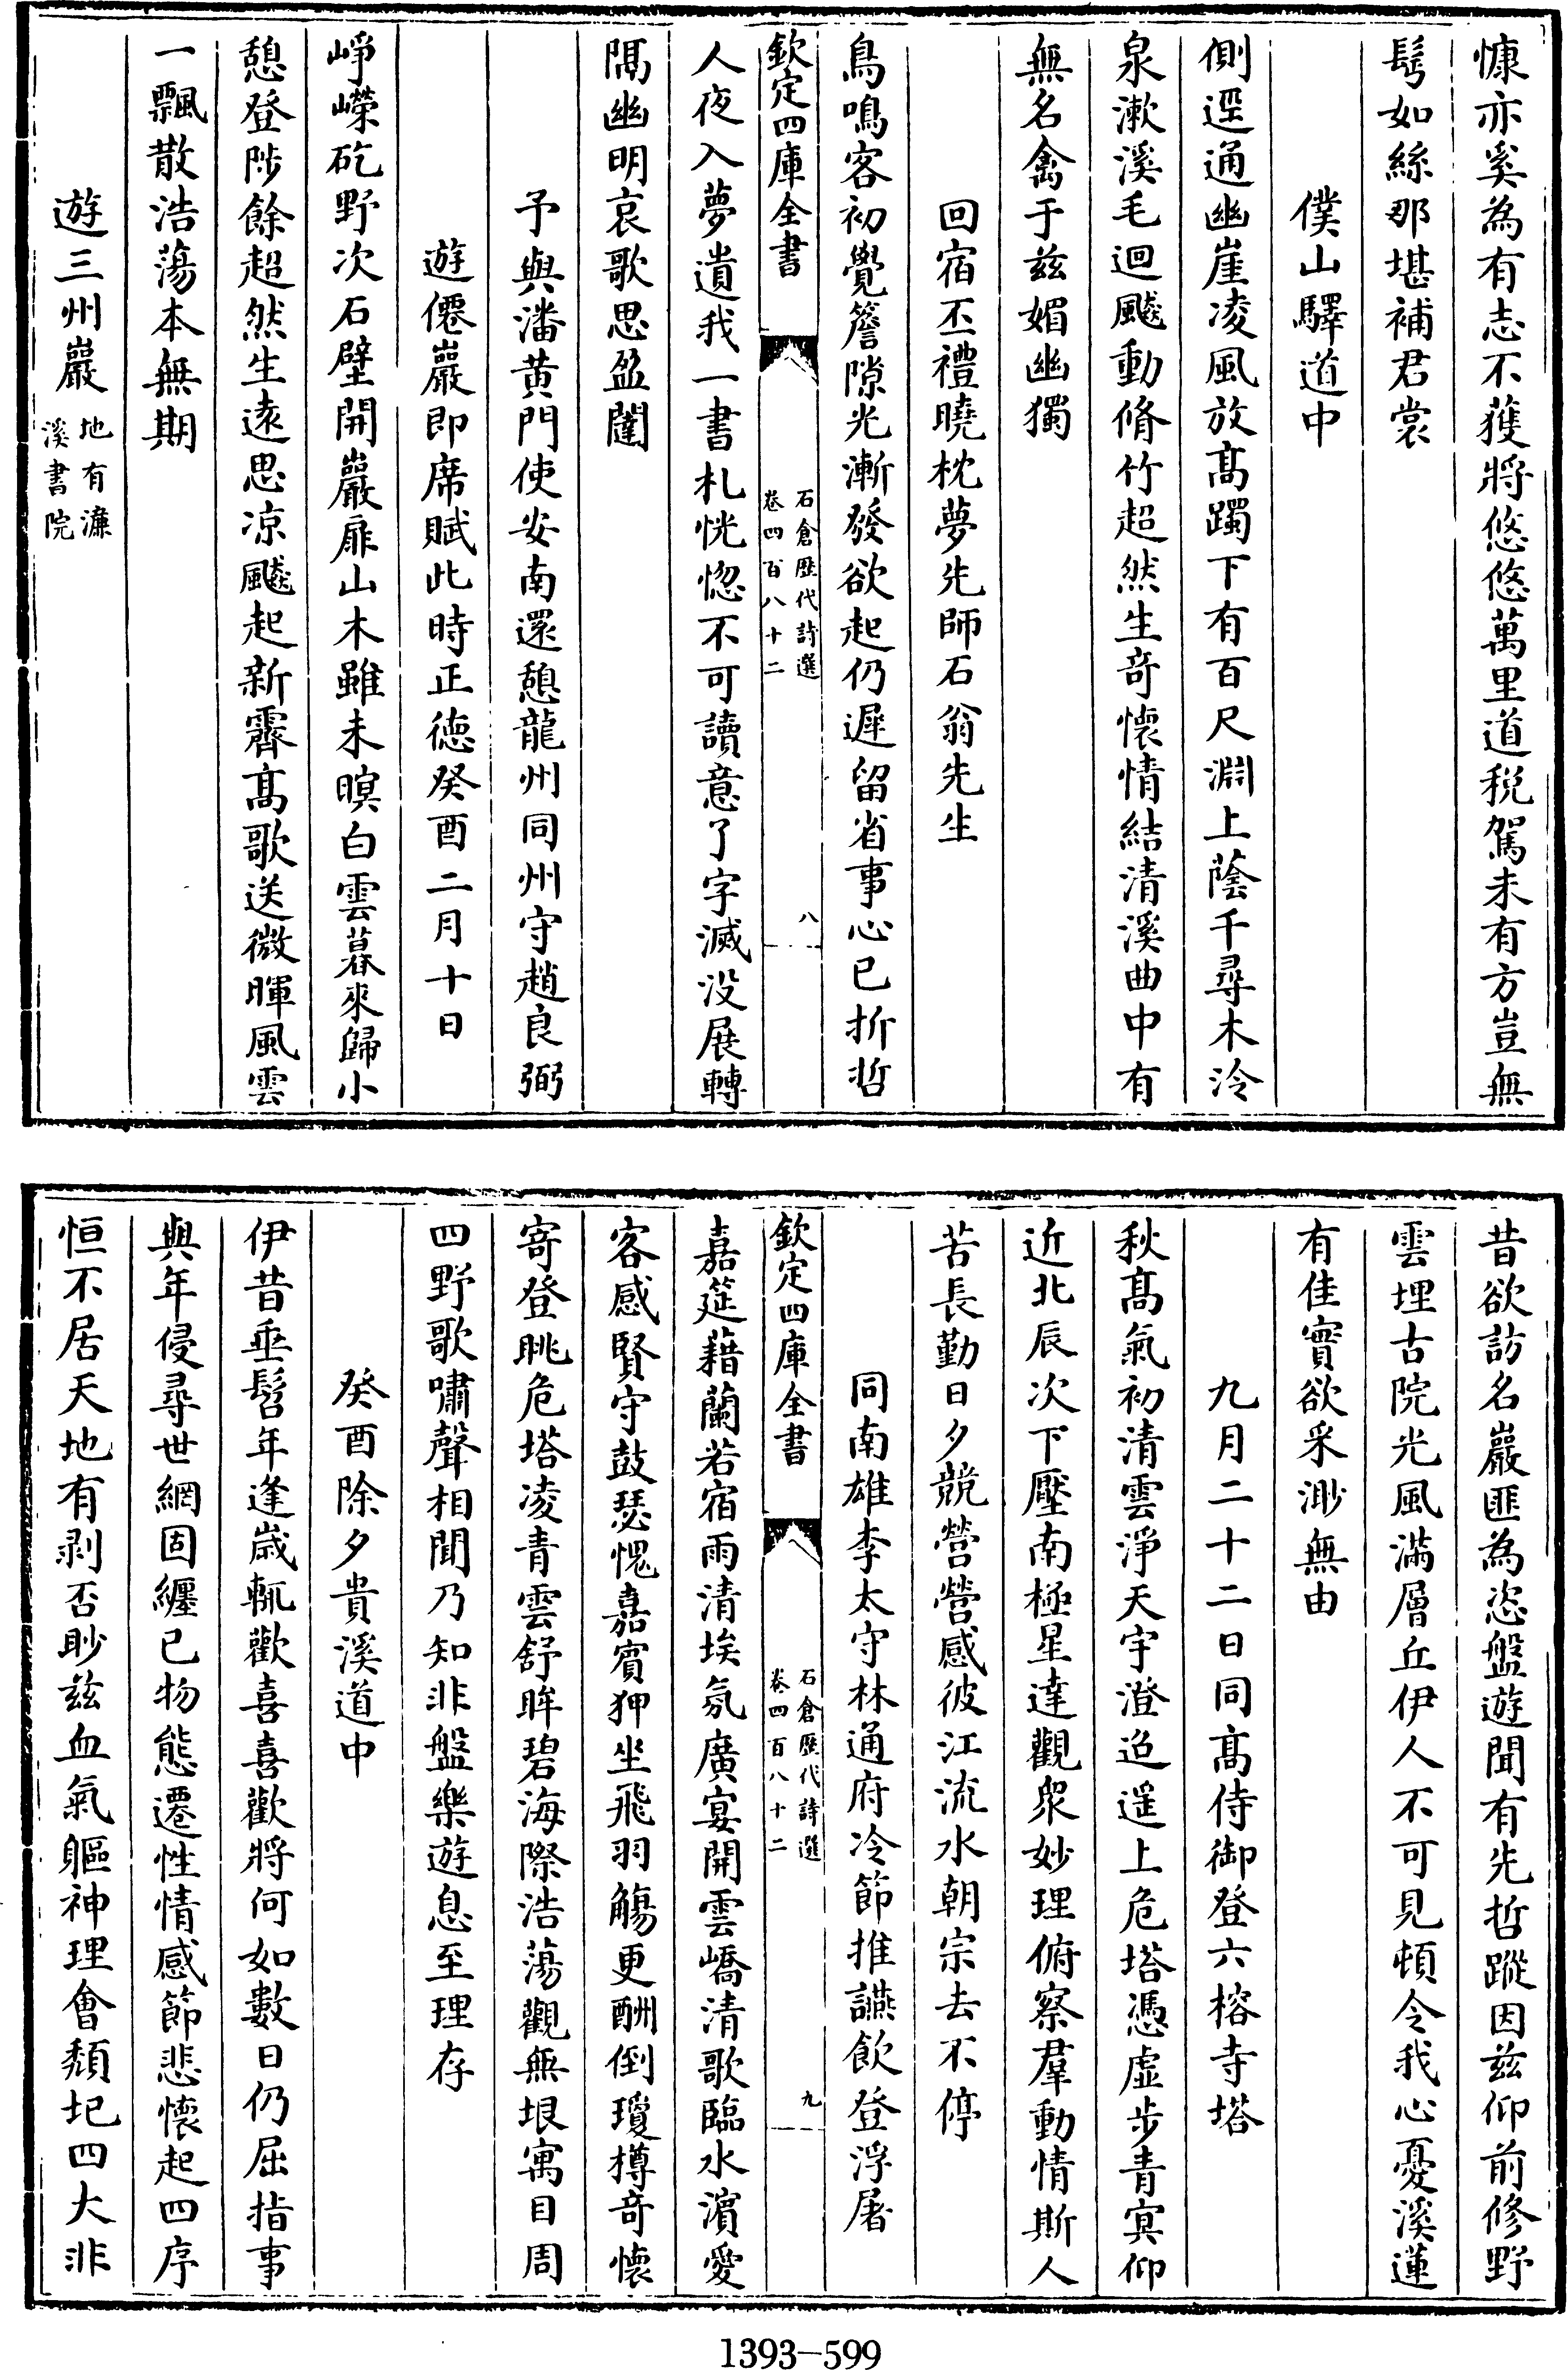 慷亦奚為有志不獲將悠悠萬里道税駕未有方豈無
髩如絲那堪補君裳
僕山驛道中
側逕通幽崖凌風放髙躅下有百尺淵上蔭千尋木泠
泉漱溪毛迴飈動脩竹超然生竒懐情結清溪曲中有
無名禽于兹媚幽獨
回宿丕禮曉枕夢先師石翁先生
鳥鳴客初覺簷隙光漸發欲起仍遲留省事心已折哲
欽定四庫全書
石倉歴代詩選
卷四百八十二
八
人夜入夢遺我一書札恍惚不可讀意了字滅没展轉
隔幽明哀歌思盈闥
予與潘黄門使安南還憩龍州同州守趙良弼
遊僊巖即席賦此時正徳癸酉二月十日
崢嶸矻野次石壁開巖扉山木雖未暝白雲暮來歸小
憩登陟餘超然生逺思凉飈起新霽髙歌送微暉風雲
一飄散浩蕩本無期
遊三州巖
地有濂
溪書院
昔欲訪名巖匪為恣盤遊聞有先哲蹤因兹仰前修野
雲埋古院光風滿層丘伊人不可見頓令我心憂溪蓮
有佳實欲采渺無由
九月二十二日同髙侍御登六榕寺塔
秋髙氣初清雲淨天宇澄迢遥上危塔憑虚步青㝠仰
近北辰次下壓南極星達觀衆妙理俯察羣動情斯人
苦長勤日夕競營營感彼江流水朝宗去不停
同南雄李太守林通府冷節推讌飲登浮屠
欽定四庫全書
石倉歴代詩選
卷四百八十二
九
嘉筵藉蘭若宿雨清埃氛廣宴開雲嶠清歌臨水濵愛
客感賢守鼓瑟愧嘉賓狎坐飛羽觴更酬倒瓊樽竒懐
寄登眺危塔凌青雲舒眸碧海際浩蕩觀無垠寓目周
四野歌嘯聲相聞乃知非盤樂遊息至理存
癸酉除夕貴溪道中
伊昔垂髫年逢嵗輒歡喜喜歡將何如數日仍屈指事
與年侵尋世網固纏已物態遷性情感節悲懐起四序
恒不居天地有剥否眇兹血氣軀神理會頽圮四大非
1393-599